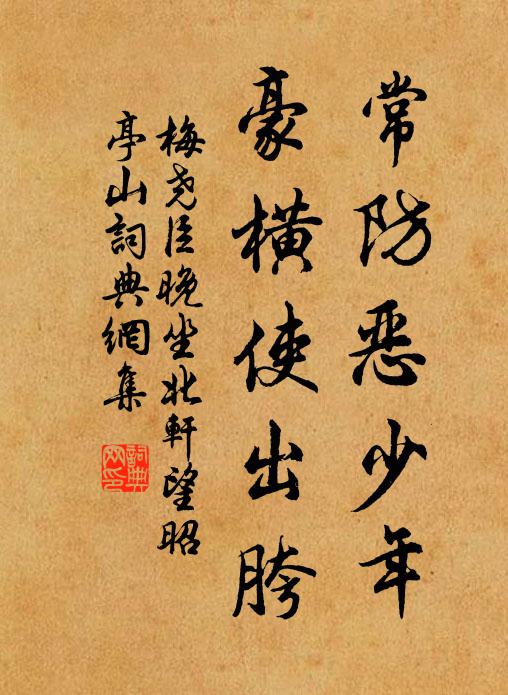 常防恶少年
豪橫使出胯
梅尧臣晚坐北軒望昭
亭山詞典網集
詞典
网印